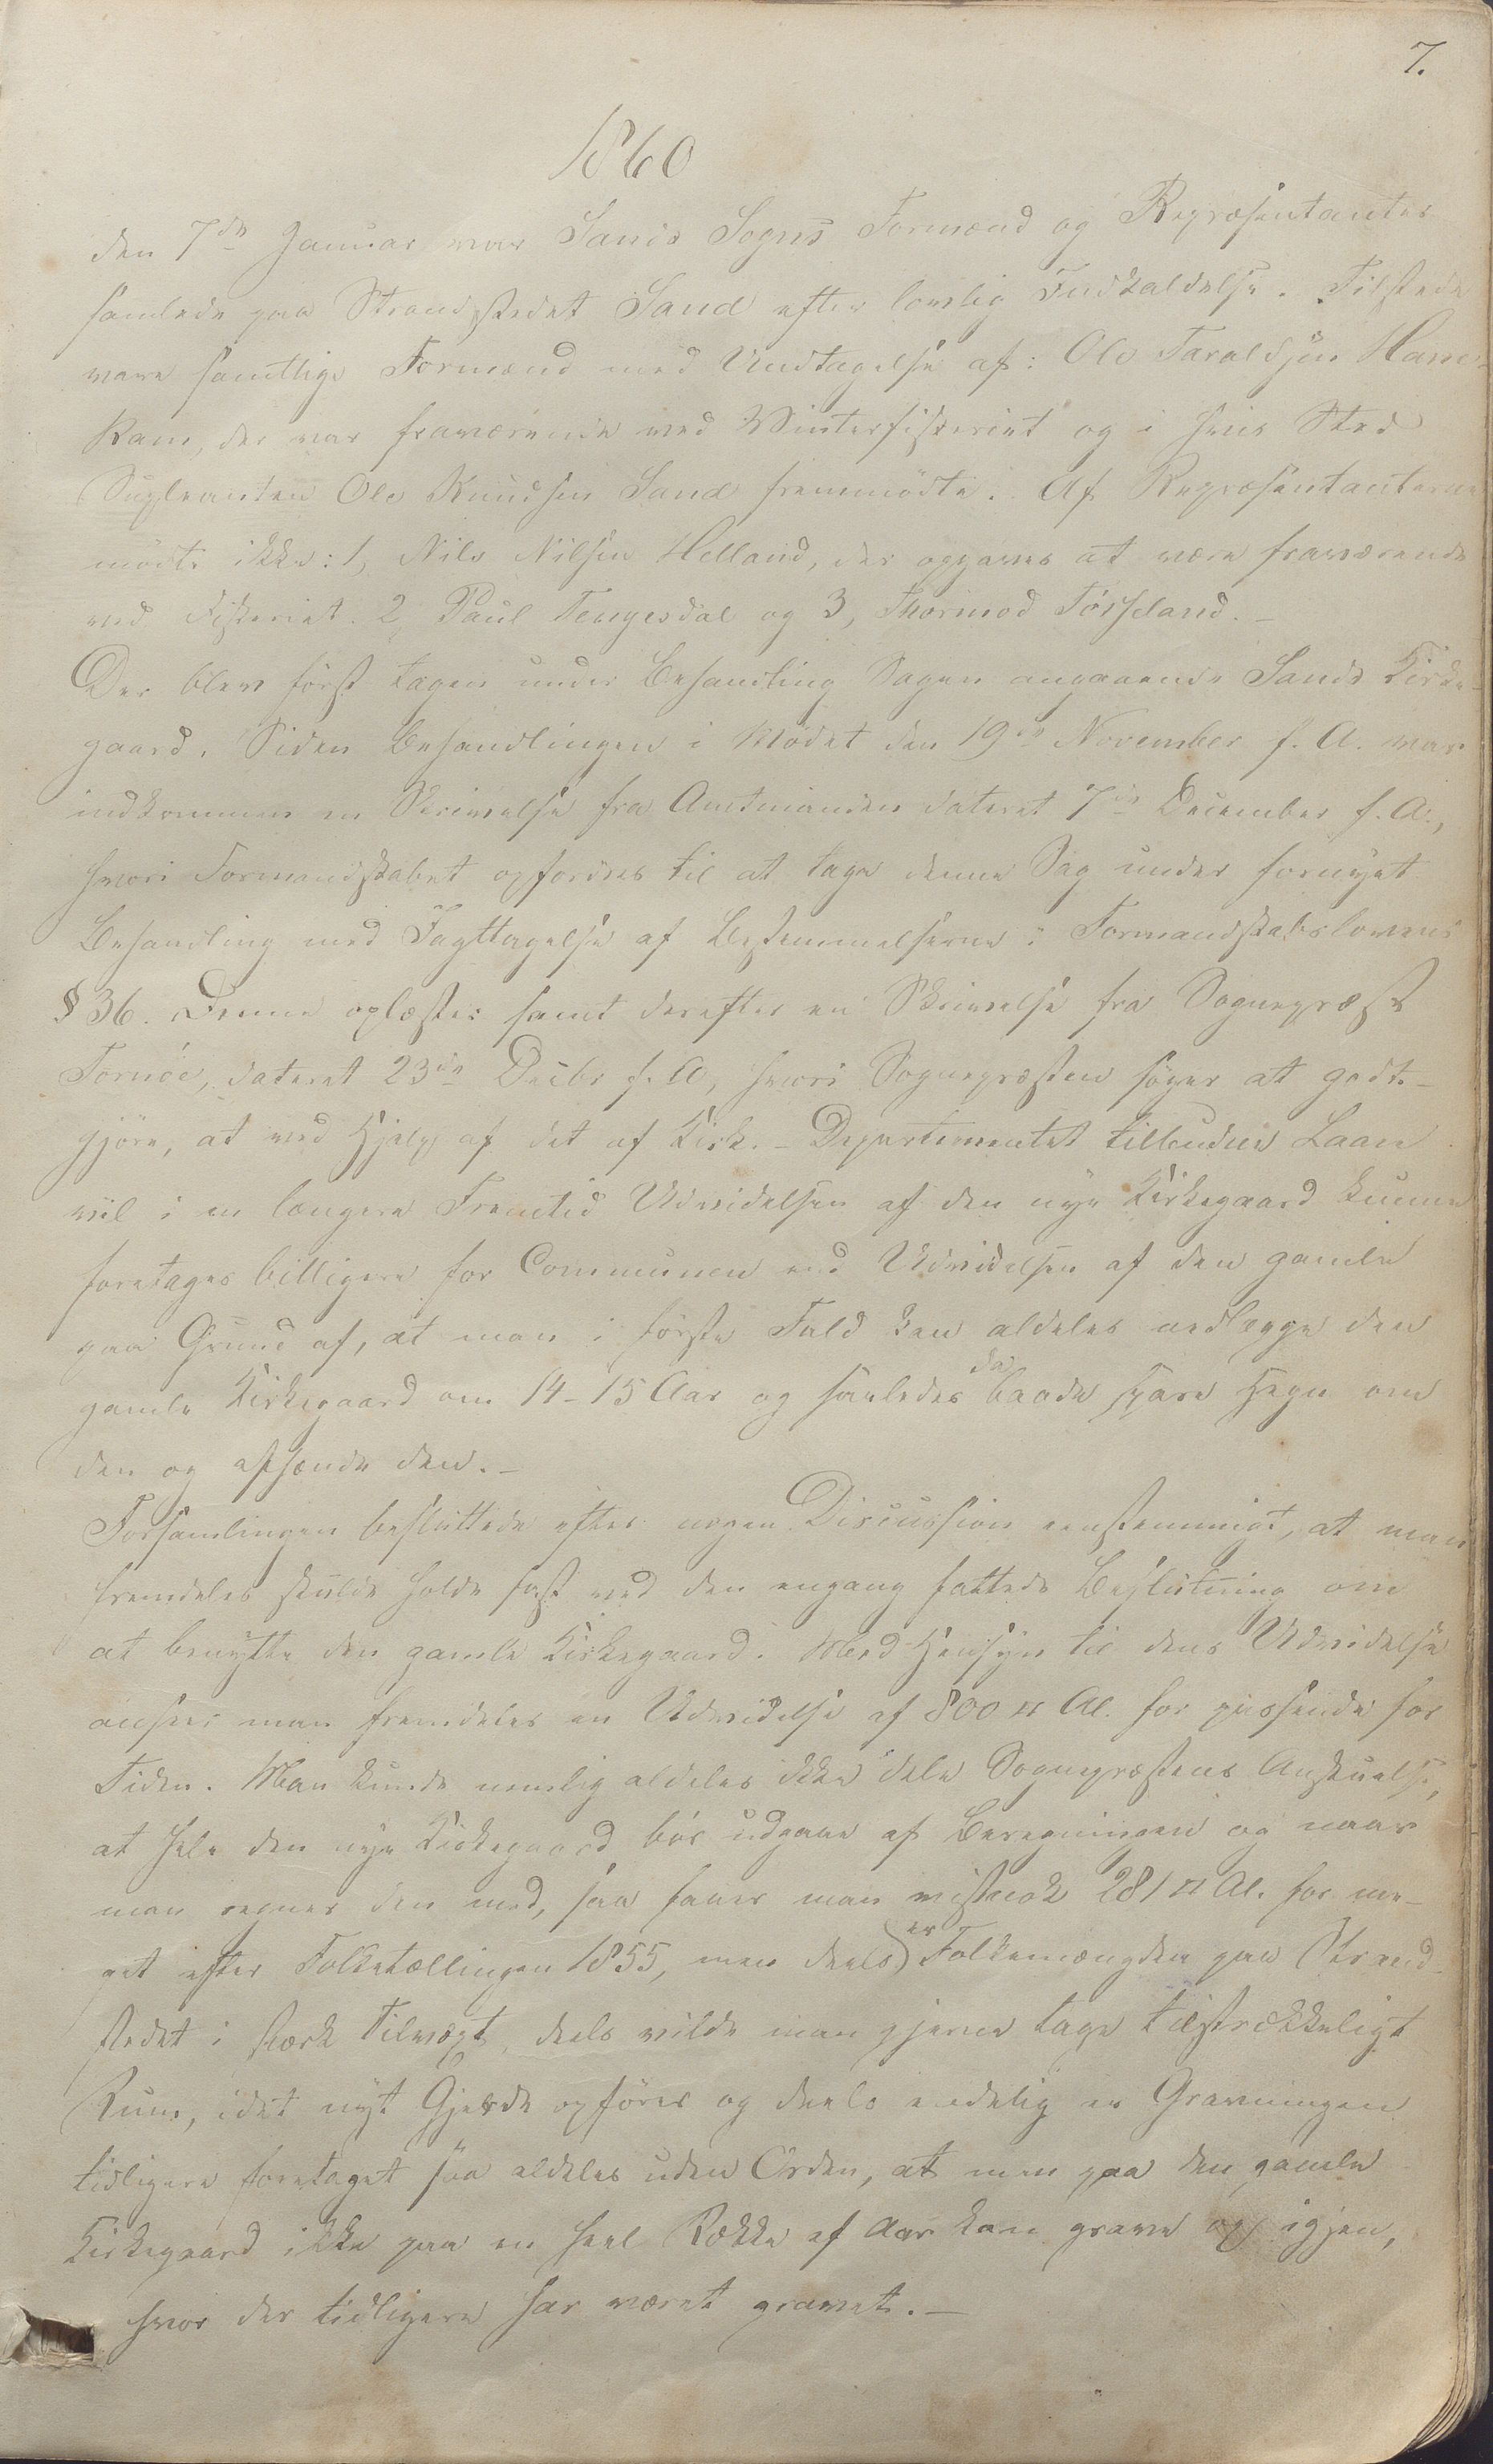 7.
1860
den 7de Januar var Sands Sogns Formænd og Repræsentanter
samlede paa Strandstedet Sand efter lovlig Indkaldelse. Tilstede
vare samtlige Formænd med Undtagelse af: Ole Taraldsen Ham-
Kam, der var fraværende ved Vinterfiskeriet og i hvis Sted
Supleanten Ole Knudsen Sand fremmödte. Af Repræsentanterne
mödte ikke: 1, Nils Nilsen Helland, der opgaves at være fraværende
ved Fiskeriet. 2, Paul Tengesdal og 3, Thormod Fösseland. –
Der blev först tagen under Behandling Sagen angaaende Sands Kirke-
gaard. Siden Behandlingen i Mödet den 19de November f. A. var
indkommen en Skrivelse fra Amtmanden dateret 7de December f. A.,
hvori Formandskabet opfordres til at tage denne Sag under fornyet
Behandling med Iagttagelse af Bestemmelserne i Formandskabslovens
§ 36. Denne oplæstes samt derefter en Skrivelse fra Sognepræst
Tornöe, dateret 23de Decbr f. A, hvori Sognepræsten söger at godt-
gjöre, at ved Hjælp af det af Kirk.-Departementet tilbudne Laan
vil i en længere Fremtid Udvidelsen af den nye Kirkegaard kunne
foretages billigere for Communen end Udvidelsen af den gamle
paa Grund af, at man i förste Fald kan aldeles nedlægge den
gamle Kirkegaard om 14-15 Aar og saaledes da baade spare Hegn om
den og afhænde den. –
Forsamlingen besluttede efter nogen Discussion eenstemmigt, at man
fremdeles skulde holde fast ved den engang fattede Beslutning om
at benytte den gamle Kirkegaard. Med Hensyn til dens Udvidelse
anser man fremdeles en Udvidelse af 800 □ Al. for passende for
Tiden. Man kunde nemlig aldeles ikke dele Sognepræstens Anskuelse,
at hele den nye Kirkegaard bör udgaae af Beregningen og naar
man regner den med, saa faaer man vistnok 281 □ Al. for me-
get efter Folketællingen 1855, men deels er Folkemængden paa Strand-
stedet i stærk Tilvæxt, deels vilde man gjerne tage tilstrækkeligt
Rum, idet nyt Gjerde opföres og deels endelig er Gravningen
tidligere foretaget saa aldeles uden Orden, at man paa den gamle
Kirkegaard ikke paa en heel Række af Aar kan grave op igjen,
hvor der tidligere har været gravet. –